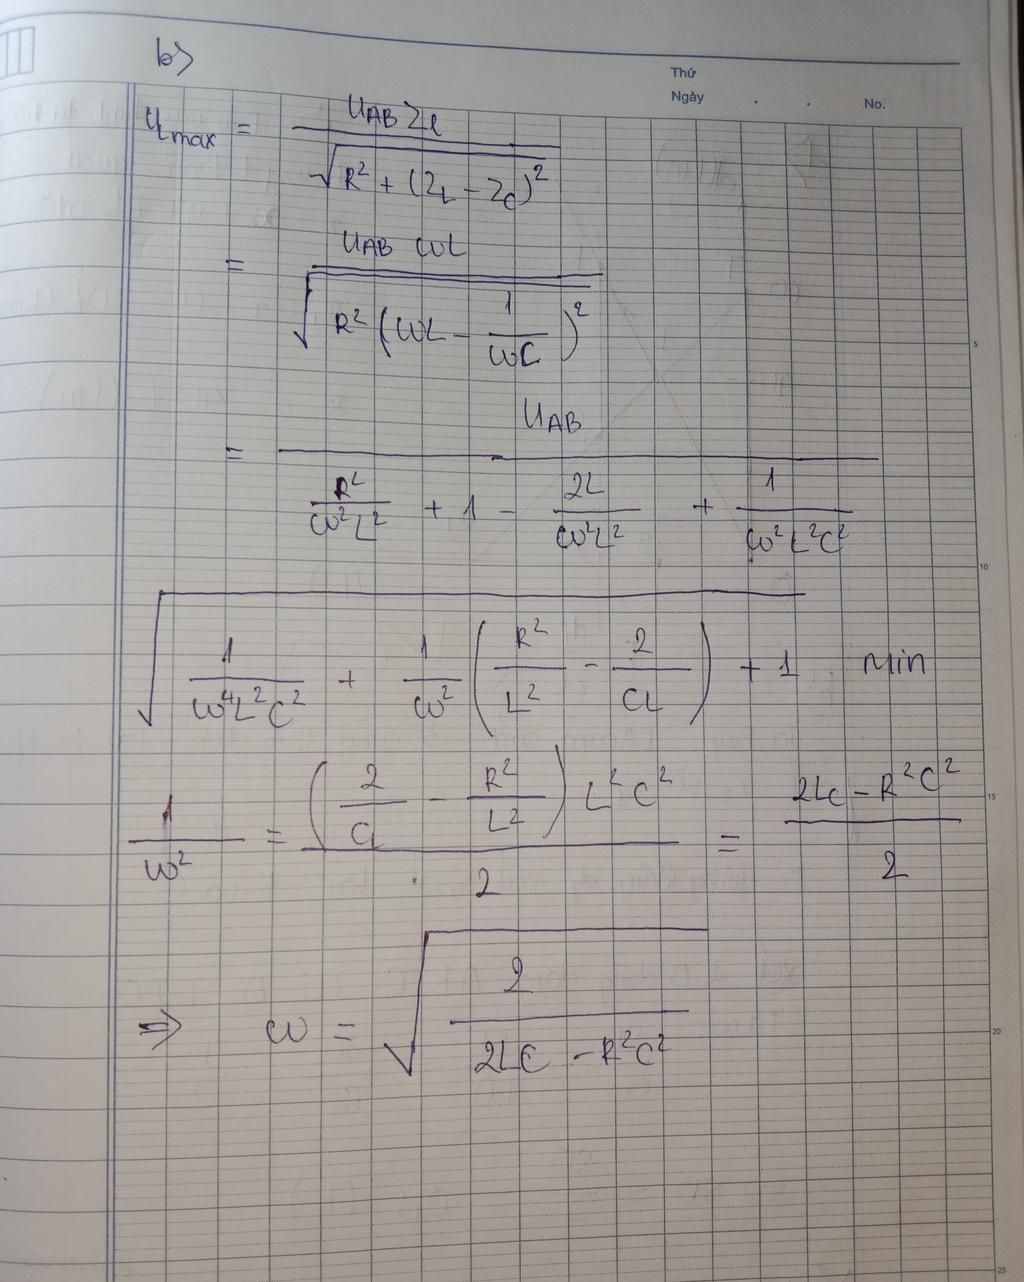 b)
Thứ
Ngày . . No.
U_Lmax = U_AB Z_L / √(R² + (Z_L - Z_C)²)
= U_AB ωL / √(R² (ωL - 1/(ωC))²)
5
= U_AB / (R²/(ω²L²) + 1 - 2L/(ω²L²) + 1/(ω²L²C²))
10
√(1/(ω⁴L²C²) + 1/ω² (R²/L² - 2/(CL)) + 1) Min
1/ω² = ((2/(CL) - R²/L²) L²C²) / 2 = (2LC - R²C²) / 2
15
⇒ ω = √(2 / (2LC - R²C²))
20
25